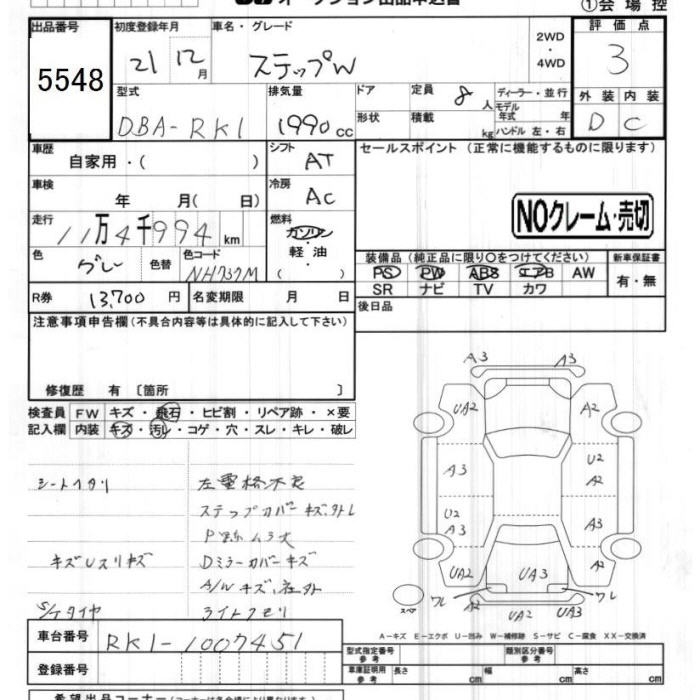 オークション出品申込書
①会場控
出品番号
5548
初度登録年月
21 12月
車名・グレード
ステップW
2WD
・
4WD
評価点
3
外装 内装
D C
型式
DBA-RK1
排気量
1990 cc
ドア
形状
定員 8 人
積載 kg
ディーラー・並行
モデル年式 年
ハンドル 左・右
車歴
自家用・( )
シフト
AT
セールスポイント (正常に機能するものに限ります)
車検
年 月( 日)
冷房
AC
NOクレーム・売切
走行
11万4千994 km
燃料
ガソリン
・
軽油
( )
色
グレー
色替
色コード
NH737M
装備品 (純正品に限り○をつけてください)
PS PW ABS エアB AW
SR ナビ TV カワ
新車保証書
有・無
R券 13,700 円
名変期限 月 日
後日品
注意事項申告欄(不具合内容等は具体的に記入して下さい)
修復歴 有 〔箇所 〕
検査員記入欄
FW キズ・飛石・ヒビ割・リペア跡・×要
内装 キズ・汚レ・コゲ・穴・スレ・キレ・破レ
シートヘタリ
左電格不良
ステップカバーキズ、外レ
ムラ大
キズUスリキズ
Dミラーカバーキズ
A/Wキズ、社外
S/Tタイヤ
ライトクモリ
A3 A3
UA2 A2
A3 U2 A2
U2 A3 A3
UA2 UA3 A2
ワレ ワレ
A2 UA2 UA3
スペア
A－キズ E－エクボ U－凹み W－補修跡 S－サビ C－腐食 XX－交換済
車台番号
RK1-1007451
登録番号
型式指定番号 参考
類別区分番号 参考
車庫証明用 参考
長さ cm 幅 cm 高さ cm
希望出品コーナー